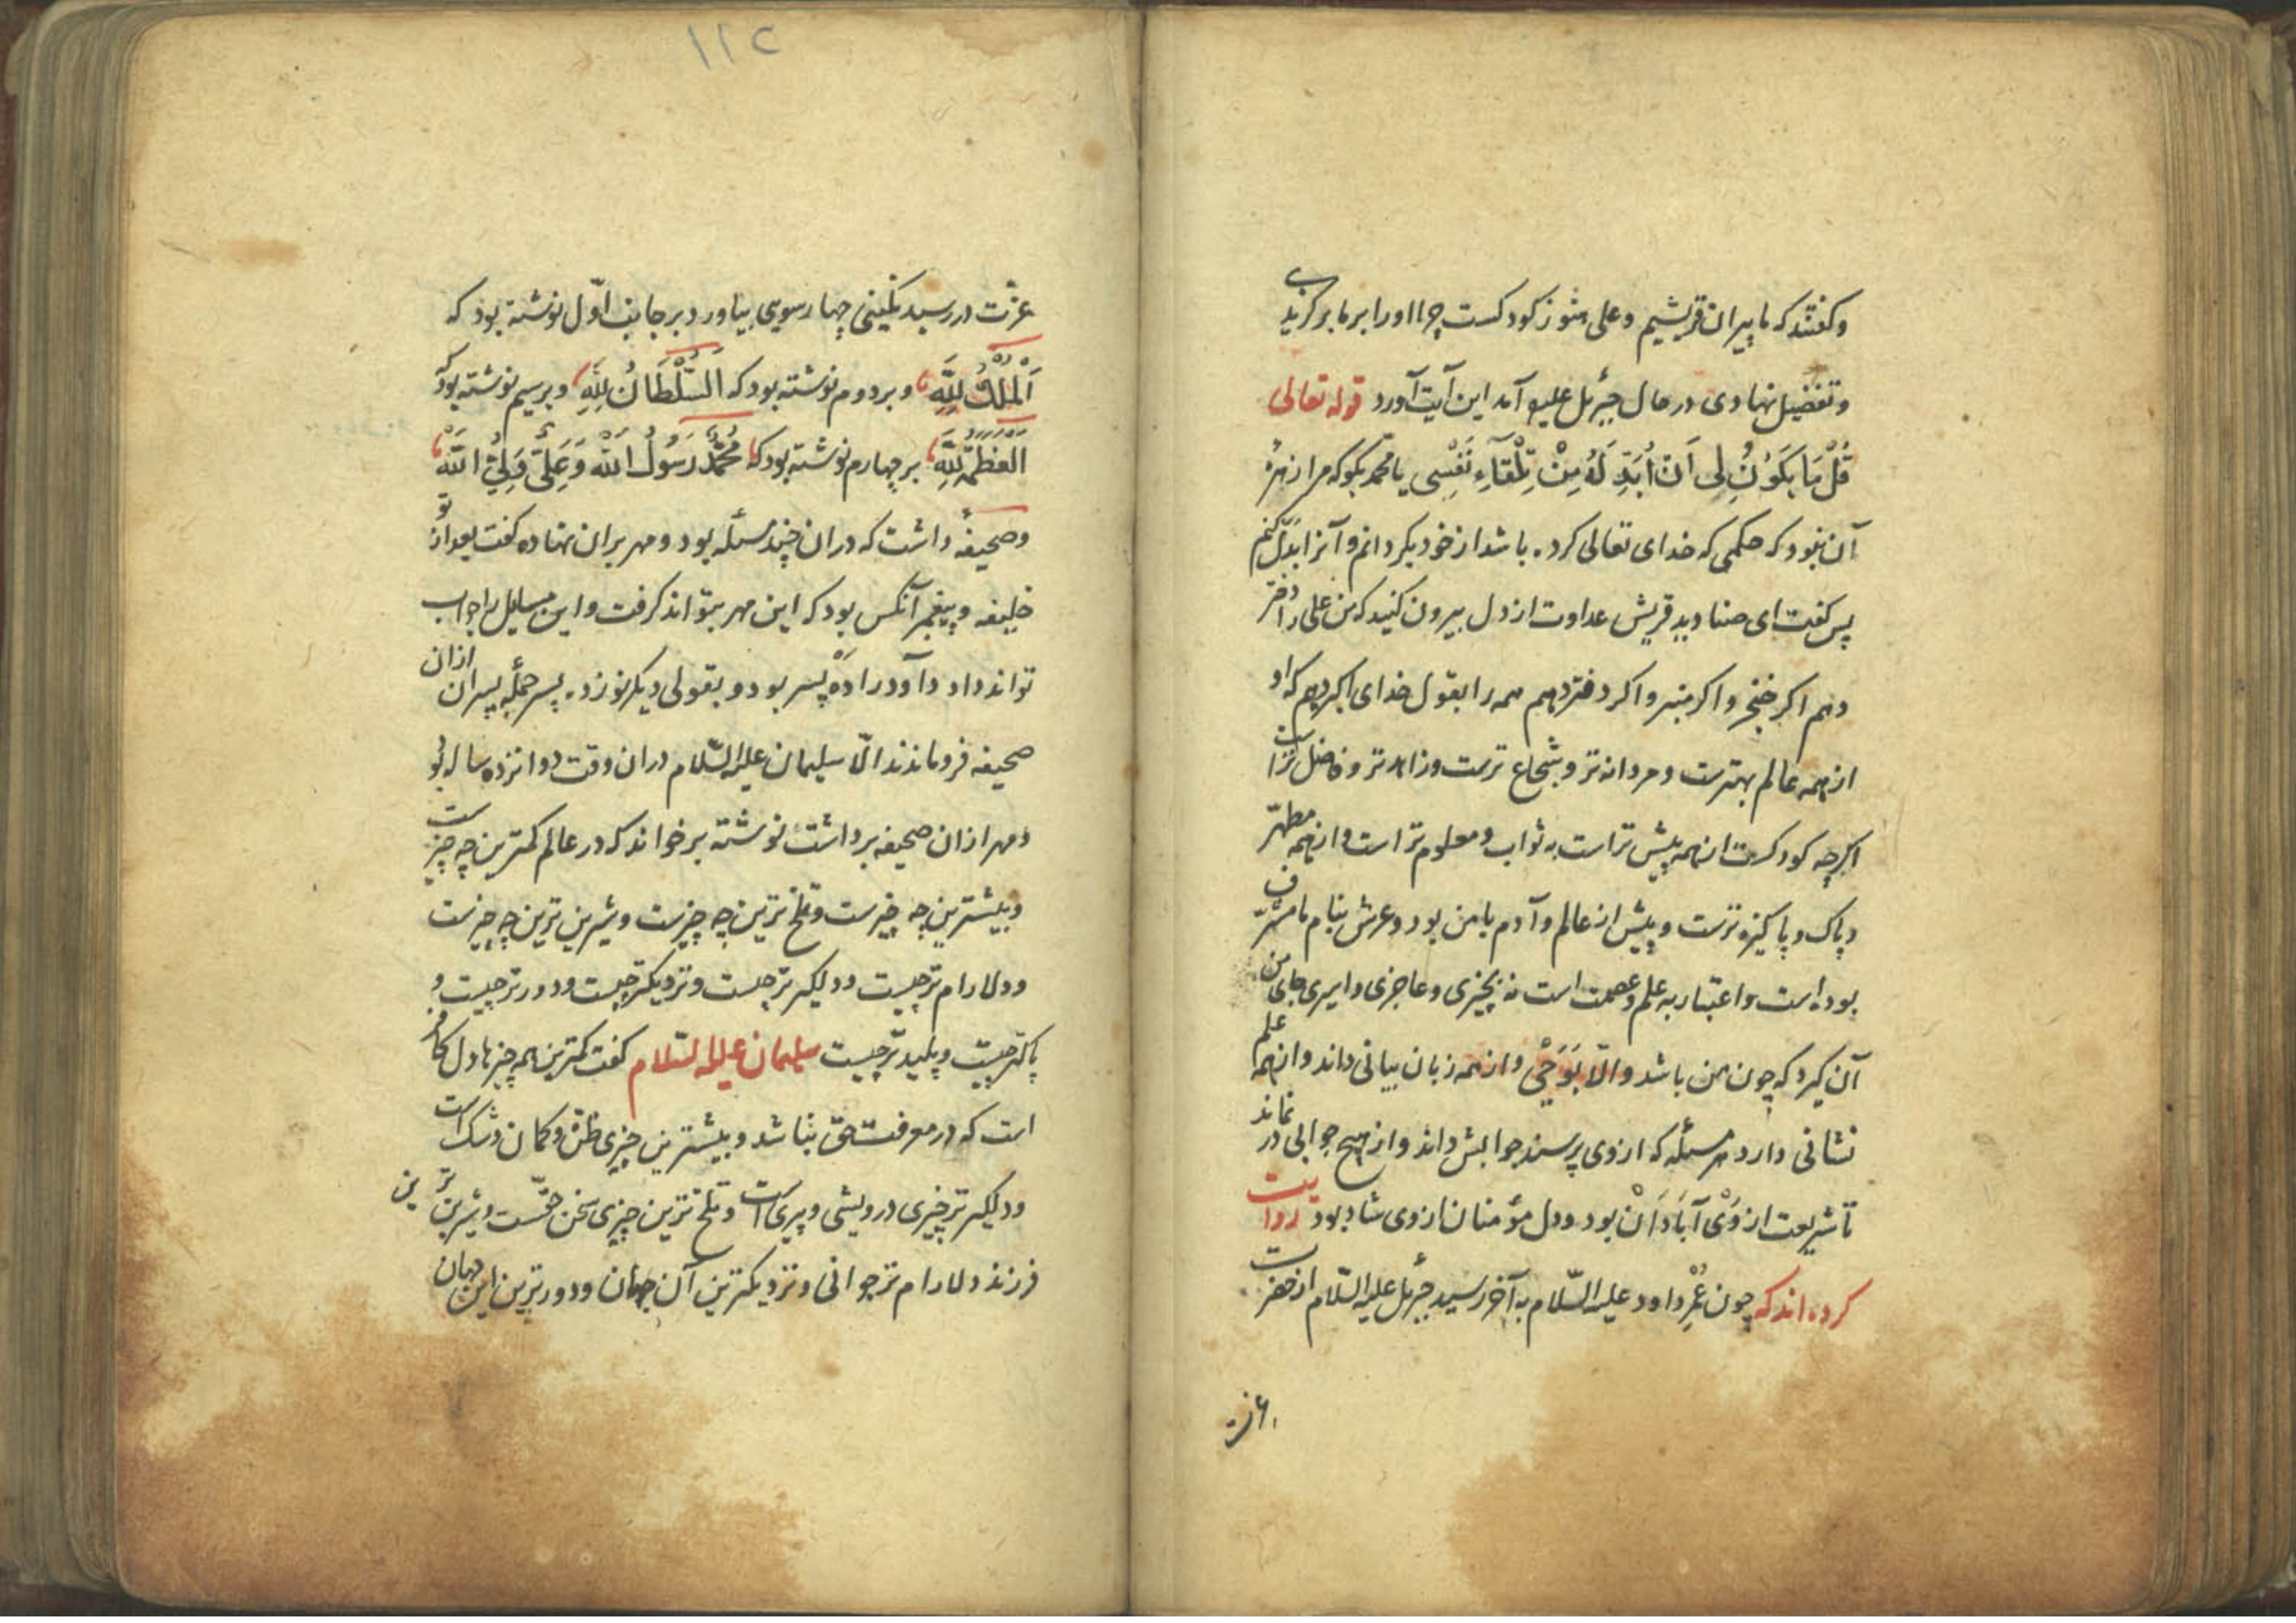 وکفتند که ما پیران قریشیم وعلی هنوز کودکست چرا اورا بر ما برکزیدی
وتفضیل نهادی در حال جبرئل علیه آمد این آیت آورد قوله تعالی
قُلْ مَا یَکُوْنُ لِی اَنْ اُبَدِّلَهُ مِنْ تِلْقَآءِ نَفْسِی یا محمد بکو که مرا زهرهٔ
آن نبود که حکمی که خدای تعالی کرده باشد از خود بکردانم وآنرا بدل کنم
پس کفت ای صنادید قریش عداوت از دل بیرون کنید که من علی را دختر
دهم اکر خنجر واکر منبر واکر دفتر دهم همه را بقول خدای اکبر دهم که او
از همه عالم بهترست ومردانه تر وشجاع ترست وزاهد تر وفاضل تراست
اکرچه کودکست از همه پیش تراست به ثواب ومعلوم تر است واز همه مطهّر
وپاک وپاکیزه ترست وپیش از عالم وآدم با من بود وعرش بنام ما مشرّف
بوده است واعتبار به علم وعصمت است نه بچیزی وعاجزی واسیری جای من
آن کیرد که چون من باشد والّا بَوَحْیِ واز همه زبان بیانی داند واز همه علم
نشانی دارد هر مسئله که ازوی پرسند جوابش داند واز هیچ جوابی در نماند
تا شریعت از وَیْ آبَادَانْ بود ودل مؤمنان ازوی شاد بود روایت
کرده اند که چون عُمْرِ داود علیه السّلام به آخر رسید جبرئل علیه السّلام از حضرت
عزت
١١٢
عزّت در رسید نکینی چهار سویی بیاورد بر جانب اوّل نوشته بود که
اَلْمُلْکُ لِلّٰهِ وبر دوم نوشته بود که اَلسُّلْطَانُ لِلّٰهِ وبر سیم نوشته بود که
اَلْعَظَمَةُ لِلّٰهِ بر چهارم نوشته بود که مُحَمَّدٌ رَسُوْلُ اللّٰه وَعَلِیٌّ وَلِیُّ اللّٰه
وصحیفهٔ داشت که دران چند مسئله بود ومهر بران نهاده کفت بعد از تو
خلیفه وپیغمبر آنکس بود که این مهر بتواند کرفت واین مسایل را جواب
تواند داد داود را دَهْ پسر بود وبقولی دیکر نوزده پسر جملهٔ پسران ازان
صحیفه فرو ماندند الّا سلیمان علیه السّلام دران وقت دوانزده ساله بود
ومهر ازان صحیفه برداشت نوشته برخواند که در عالم کمترین چه چیزست
وبیشترین چه چیزست وتلخ ترین چه چیزست وشیرین ترین چه چیزست
ودلارام تر چیست ودلیکر تر چیست ونزدیکتر چیست ودور تر چیست و
پاکتر چیست وپلید تر چیست سلیمان علیه السّلام کفت کمترین همه چیزها دل کافر
است که در معرفت حق بنا شد وبیشترین چیزی ظنّ وکمان وشک است
ودلیکر تر چیزی درویشی وپیری است وتلخ ترین چیزی سخن حقّست وشیرین ترین
فرزند دلارام تر جوانی ونزدیکترین آن جهان ودور ترین این جهان